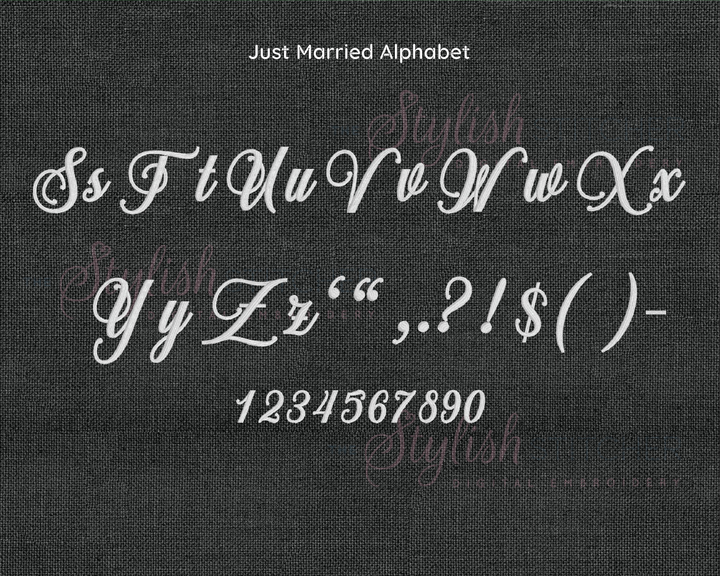 Just Married Alphabet
Stylish
Ss Tt Uu Vv Ww Xx
Stylish
Yy Zz ‘ “ , . ? ! $ ( ) -
1234567890
Stylish
DIGITAL EMBROIDERY